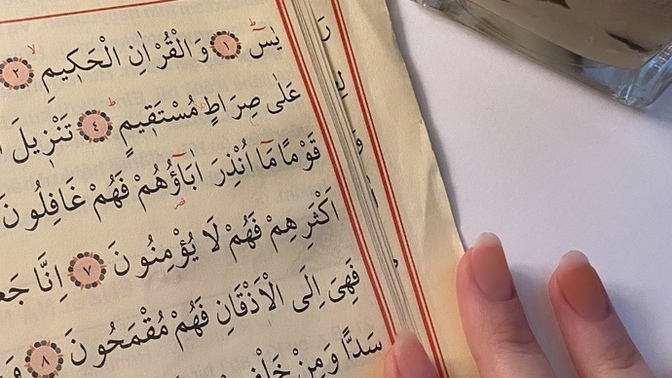 يٰسٓ ﴿١﴾ وَالْقُرْاٰنِ الْحَكٖيمِ ﴿٢﴾
عَلٰى صِرَاطٍ مُسْتَقٖيمٍ ﴿٤﴾ تَنْزٖيلَ
قَوْمًا مَٓا اُنْذِرَ اٰبَٓاؤُ۬هُمْ فَهُمْ غَافِلُونَ
اَكْثَرِهِمْ فَهُمْ لَا يُؤْمِنُونَ ﴿٧﴾ اِنَّا
فَهِيَ اِلَى الْاَذْقَانِ فَهُمْ مُقْمَحُونَ ﴿٨﴾
سَدًّا وَمِنْ